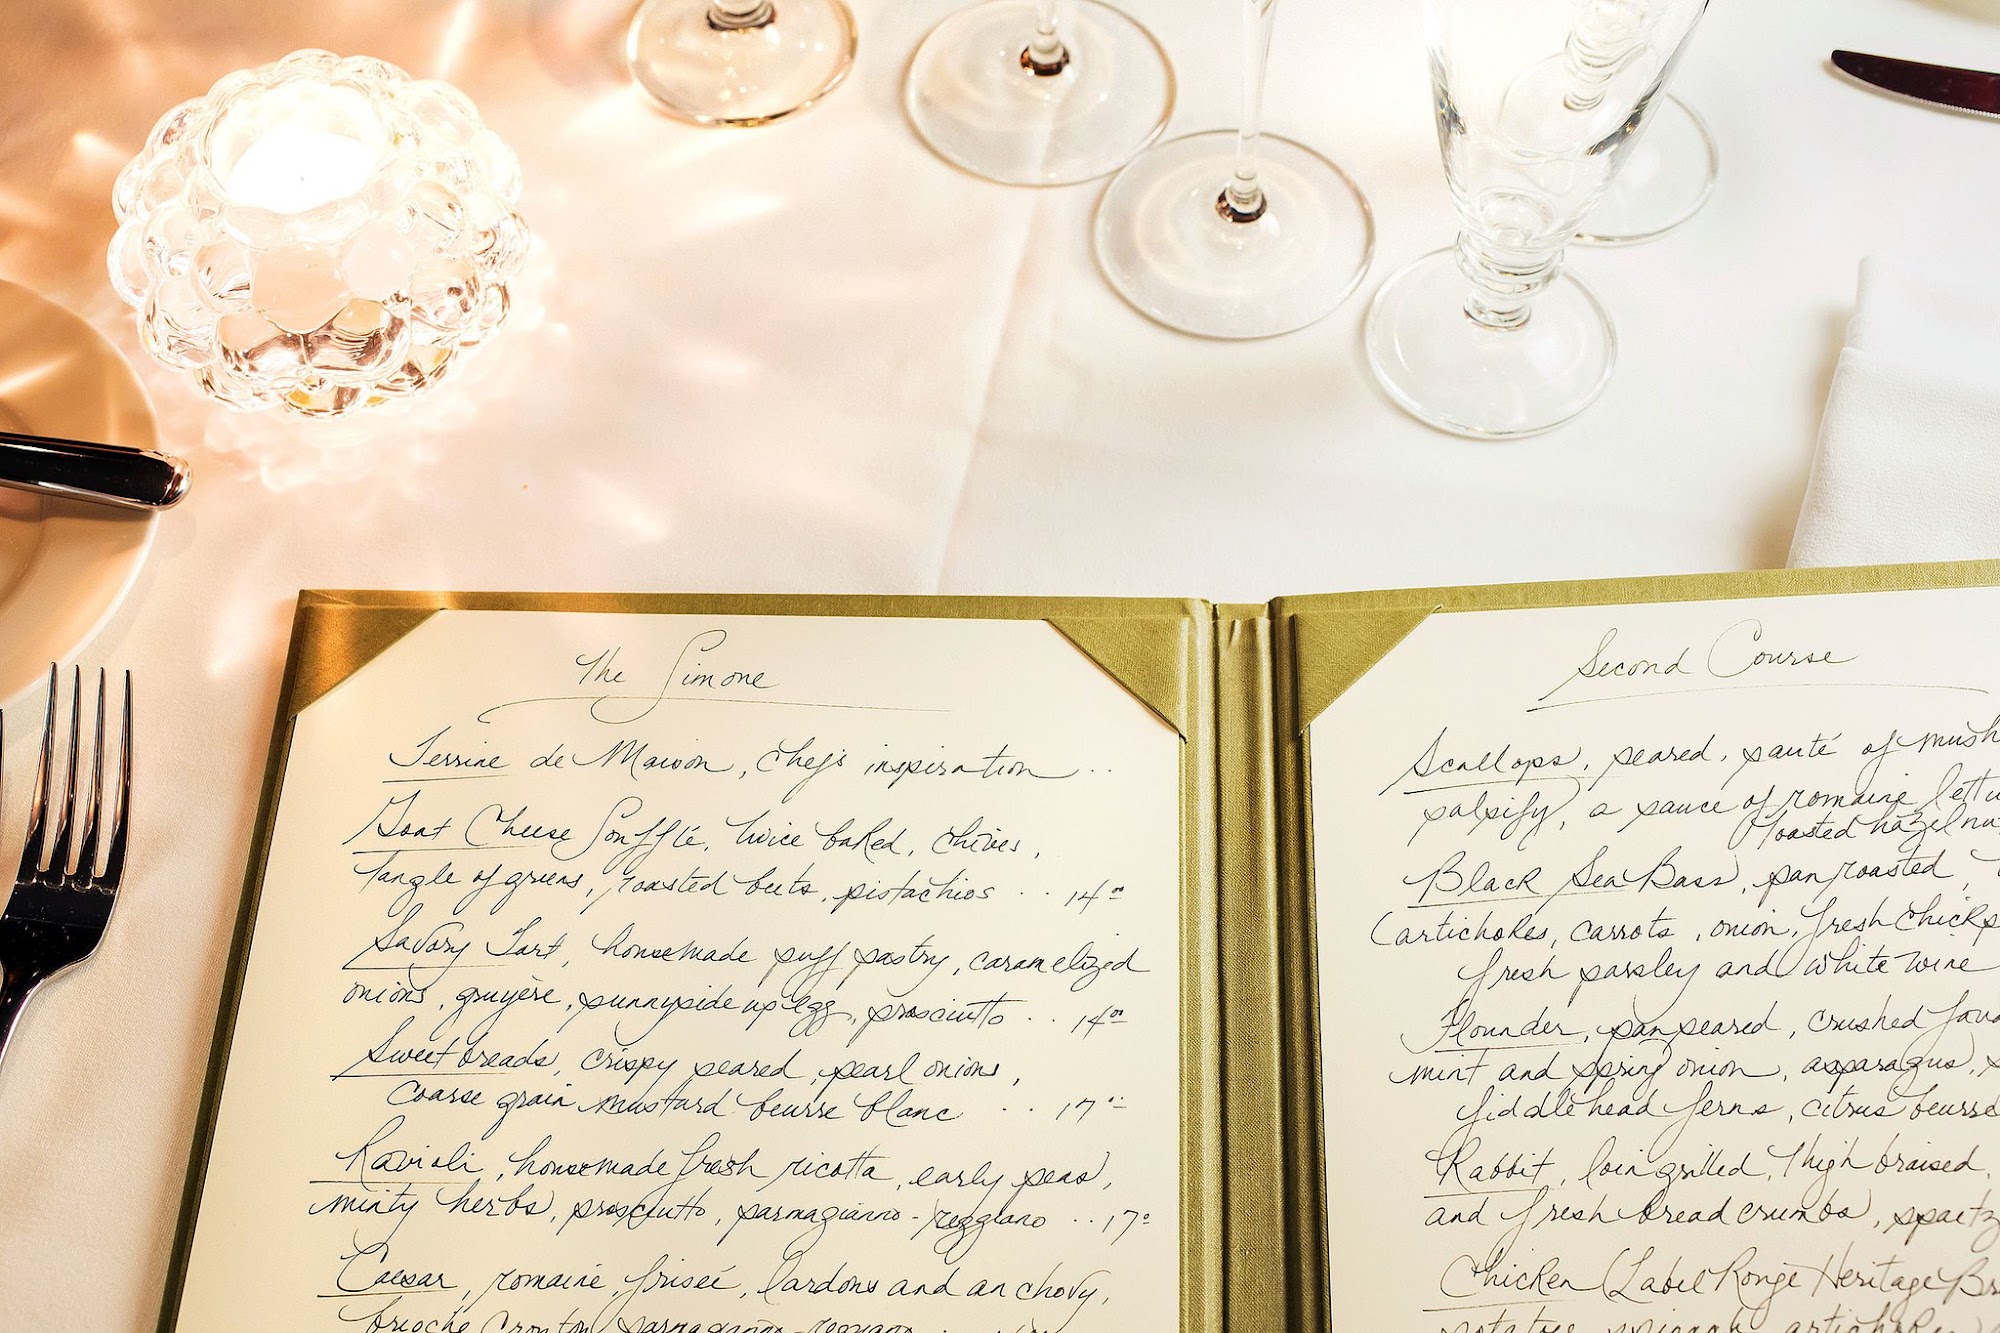 The Simone
Terrine de Maison, Chef's inspiration ..
Goat Cheese Soufflé, twice baked, chives,
tangle of greens, roasted beets, pistachios .. 14⁰⁰
Savory Tart, homemade puff pastry, caramelized
onions, gruyère, sunnyside up egg, prosciutto .. 14⁰⁰
Sweetbreads, crispy seared, pearl onions,
coarse grain mustard beurre blanc .. 17⁰⁰
Ravioli, homemade fresh ricotta, early peas,
minty herbs, prosciutto, parmagianno-reggiano .. 17⁰
Caesar, romaine, friseé, lardons and anchovy,
brioche crouton, parmagianno-
Second Course
Scallops, seared, sauté of mush
salsify, a sauce of romaine lettu
toasted hazelnu
Black Sea Bass, pan roasted,
(artichokes, carrots, onion, fresh chickp
fresh parsley and white wine
Flounder, pan seared, crushed fava
mint and spring onion, asparagus,
fiddlehead ferns, citrus beurre
Rabbit, loin grilled, thigh braised,
and fresh bread crumbs, spaetz
Chicken (Label Ronge Heritage Br
artichoke